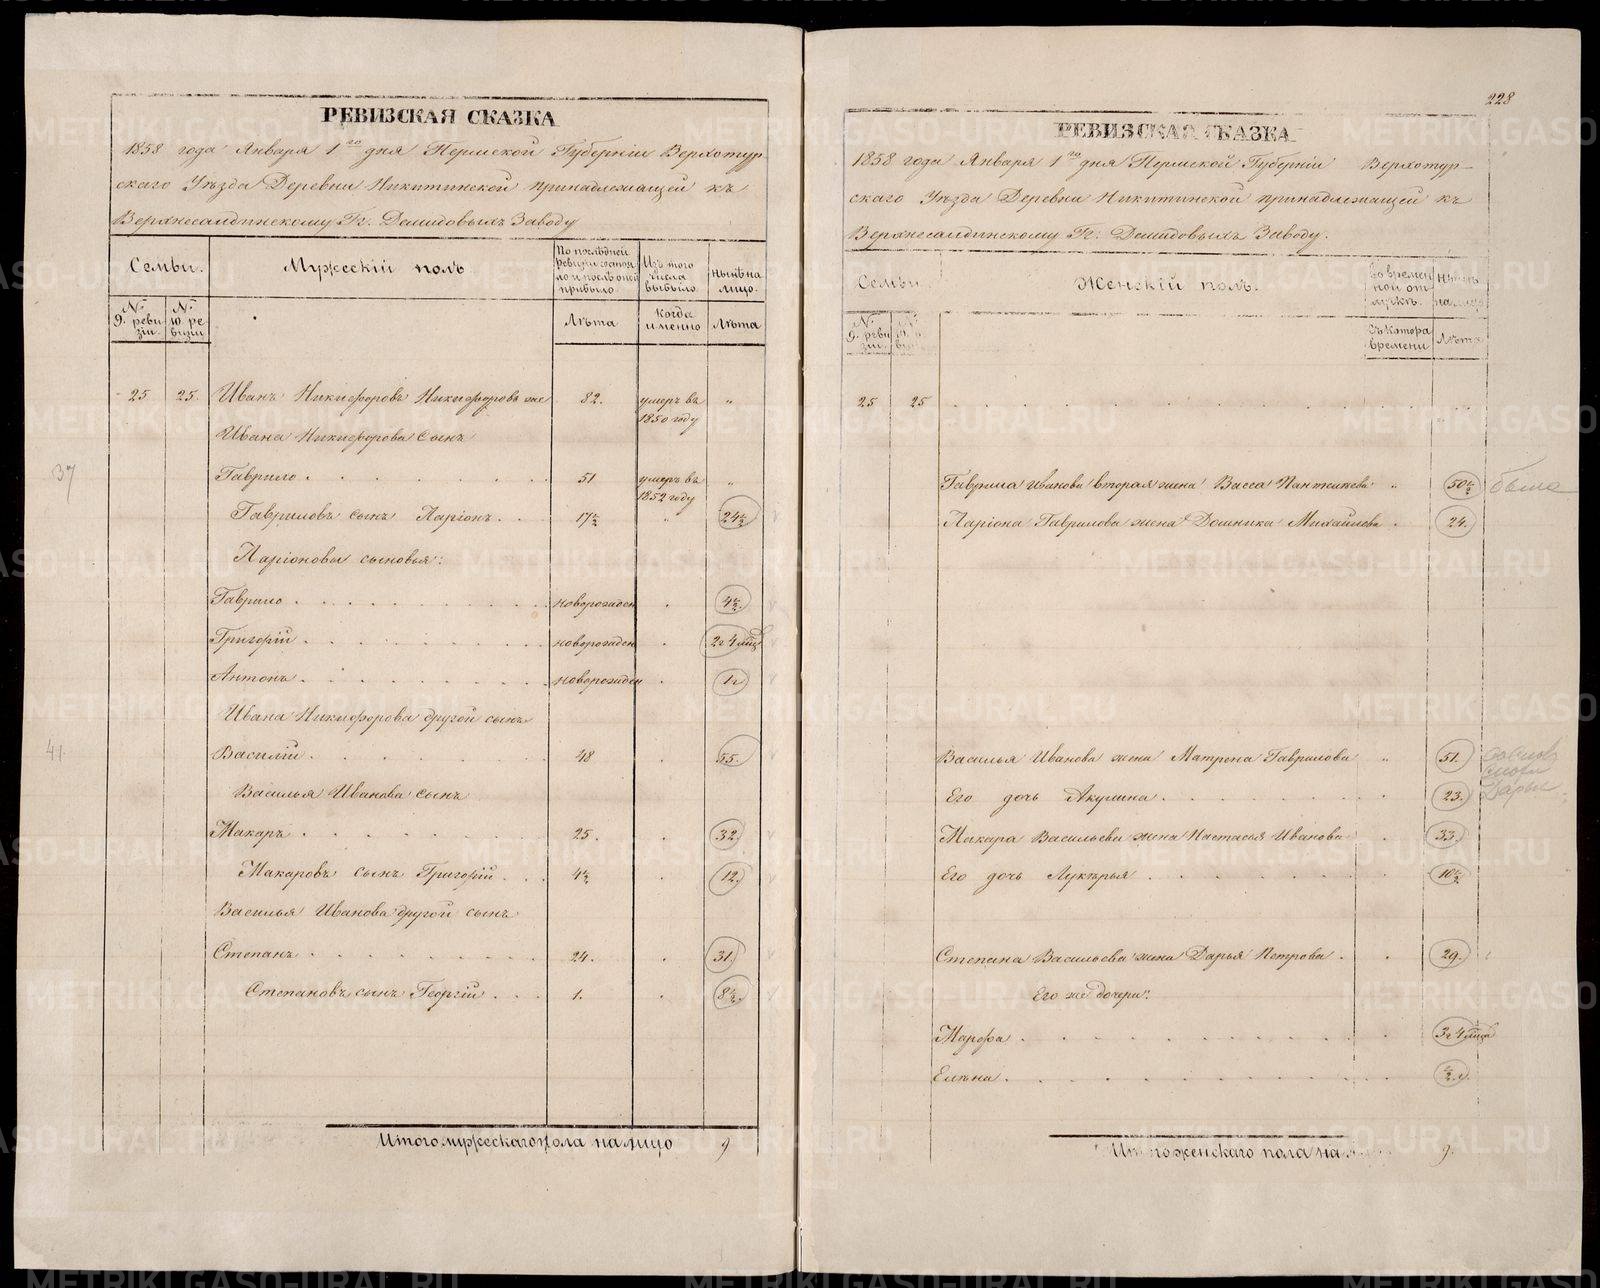 228
РЕВИЗСКАЯ СКАЗКА
1858 года Января 1го дня Пермской Губерніи Верхотур-
скаго Уѣзда Деревни Никитинской принадлежащей къ
Верхнесалдинскому Гг. Демидовыхъ Заводу
Семьи.
Мужескій полъ
По послѣдней ревизіи состоя-ло и послѣ оной прибыло.
Изъ того числа выбыло
нынѣ на лицо.
№ 9. реви зіи.
№ 10 ре визіи
Лѣта
Когда именно
Лѣта
25 25. Иванъ Никифоровъ Никифоровъ же 82. умеръ въ 1850 году „
Ивана Никифорова сынъ
37
Гаврило . 51 умеръ въ 1852 году „
Гавриловъ сынъ Ларіонъ. 17½ „ 24½
Ларіоновы сыновья:
Гаврило . новорожден . 4½.
Григорій . новорожден . 2г 4 мѣц
Антонъ . новорожден . 1г
Ивана Никифорова другой сынъ
41.
Василій . 48 . 55.
Василья Иванова сынъ
Макаръ . 25. . 32.
Макаровъ сынъ Григорій . 4½ . 12.
Василья Иванова другой сынъ
Степанъ . 24. . 31.
Степановъ сынъ Георгій . 1. . 8½.
Итого мужескаго пола на лицо 9
РЕВИЗСКАЯ СКАЗКА
1858 года Января 1го дня Пермской Губерніи Верхотур-
скаго Уѣзда Деревни Никитинской принадлежащей къ
Верхнесалдинскому Гг. Демидовыхъ Заводу.
Семьи
Женскій полъ.
Во времен ной от лучкѣ.
нынѣ на лицо
№ 9. реви зіи.
Съ котора времени
Лѣта
25 25 .
Гаврила Иванова вторая жена Васса „ 50½
Ларіона Гаврилова жена Домника Михайлова . 24.
Василья Иванова жена Матрена Гаврилова „ 51.
Его дочь Акулина . 23.
Макара Васильева жена Настасья Иванова . 33.
Его дочь Лукѣрья . 10½
Степана Васильева жена Дарья Петрова . 29.
Его же дочери:
Марфа . 3г 4 мѣца
Елѣна . ½ г.
Итого женскаго пола на 9.